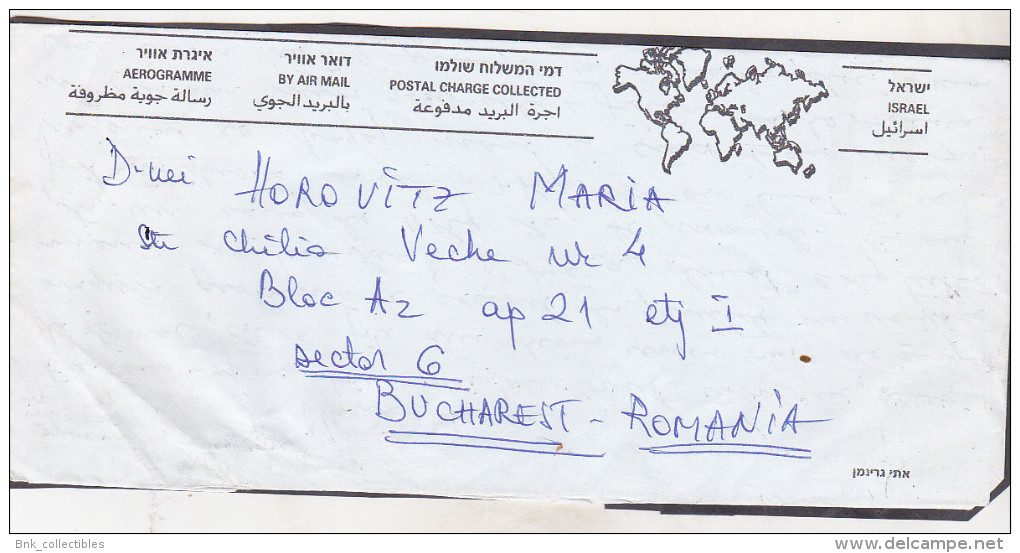 איגרת אוויר
AEROGRAMME
رسالة جوية مظروفة
דואר אוויר
BY AIR MAIL
بالبريد الجوي
דמי המשלוח שולמו
POSTAL CHARGE COLLECTED
اجرة البريد مدفوعة
ישראל
ISRAEL
اسرائيل
D-nei HOROVITZ MARIA
Str Chilia Veche nr 4
Bloc A2 ap 21 etj I
sector 6
BUCHAREST - ROMANIA
אתי גרינמן
Bnk_collectibles